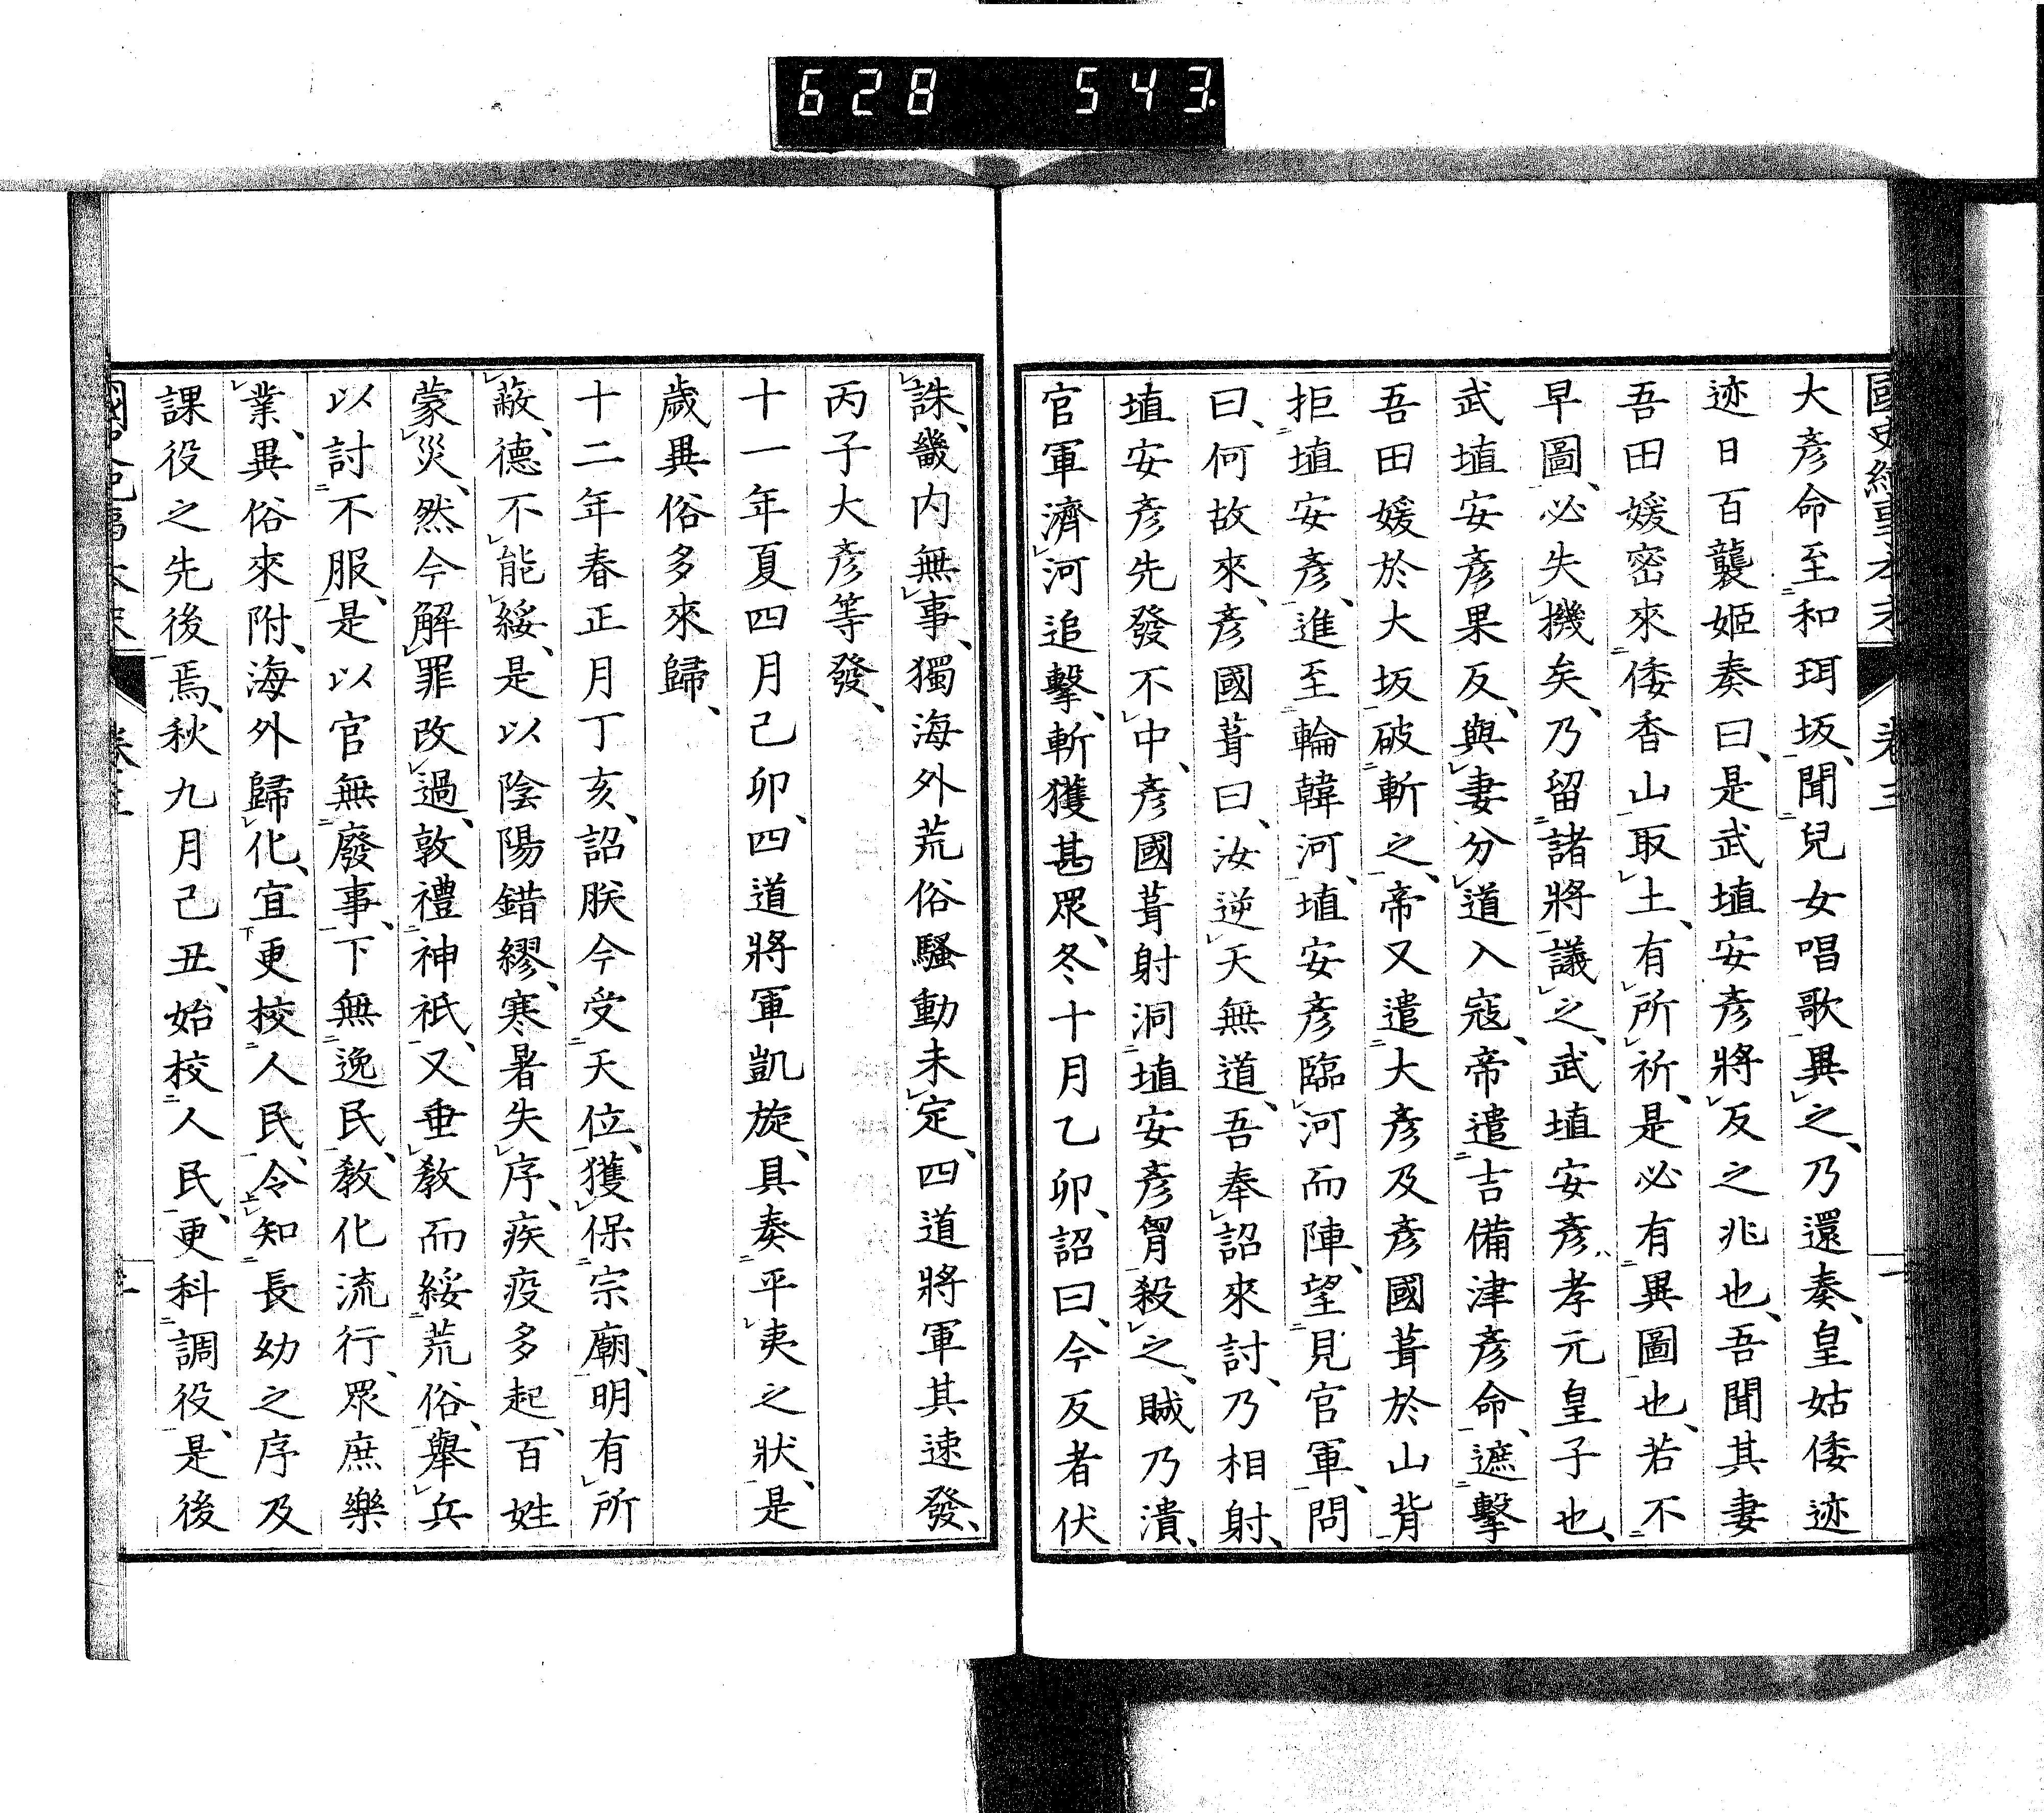 628 543
大彥命至和珥坂、聞兒女唱歌異之、乃還奏、皇姑倭迹
迹日百襲姬奏曰、是武埴安彥將反之兆也、吾聞其妻
吾田媛密來倭香山取土、有所祈、是必有異圖也、若不
早圖、必失機矣、乃留諸將議之、武埴安彥孝元皇子也、
武埴安彥果反、與妻分道入寇、帝遣吉備津彥命、遮擊
吾田媛於大坂破斬之、帝又遣大彥及彥國葺於山背
拒埴安彥、進至輪韓河、埴安彥臨河而陣、望見官軍、問
曰、何故來、彥國葺曰、汝逆天無道、吾奉詔來討、乃相射、
埴安彥先發不中、彥國葺射洞埴安彥胷殺之、賊乃潰、
官軍濟河追擊、斬獲甚眾、冬十月乙卯、詔曰、今反者伏
誅、畿內無事、獨海外荒俗騷動未定、四道將軍其速發、
丙子大彥等發、
十一年夏四月己卯、四道將軍凱旋、具奏平夷之狀、是
歲異俗多來歸、
十二年春正月丁亥、詔朕今受天位、獲保宗廟、明有所
蔽、德不能綏、是以陰陽錯繆、寒暑失序、疾疫多起、百姓
蒙災、然今解罪改過、敦禮神祇、又垂教而綏荒俗、舉兵
以討不服、是以官無廢事、下無逸民、教化流行、眾庶樂
業、異俗來附、海外歸化、宜更校人民、令知長幼之序及
課役之先後焉、秋九月己丑、始校人民、更科調役、是後